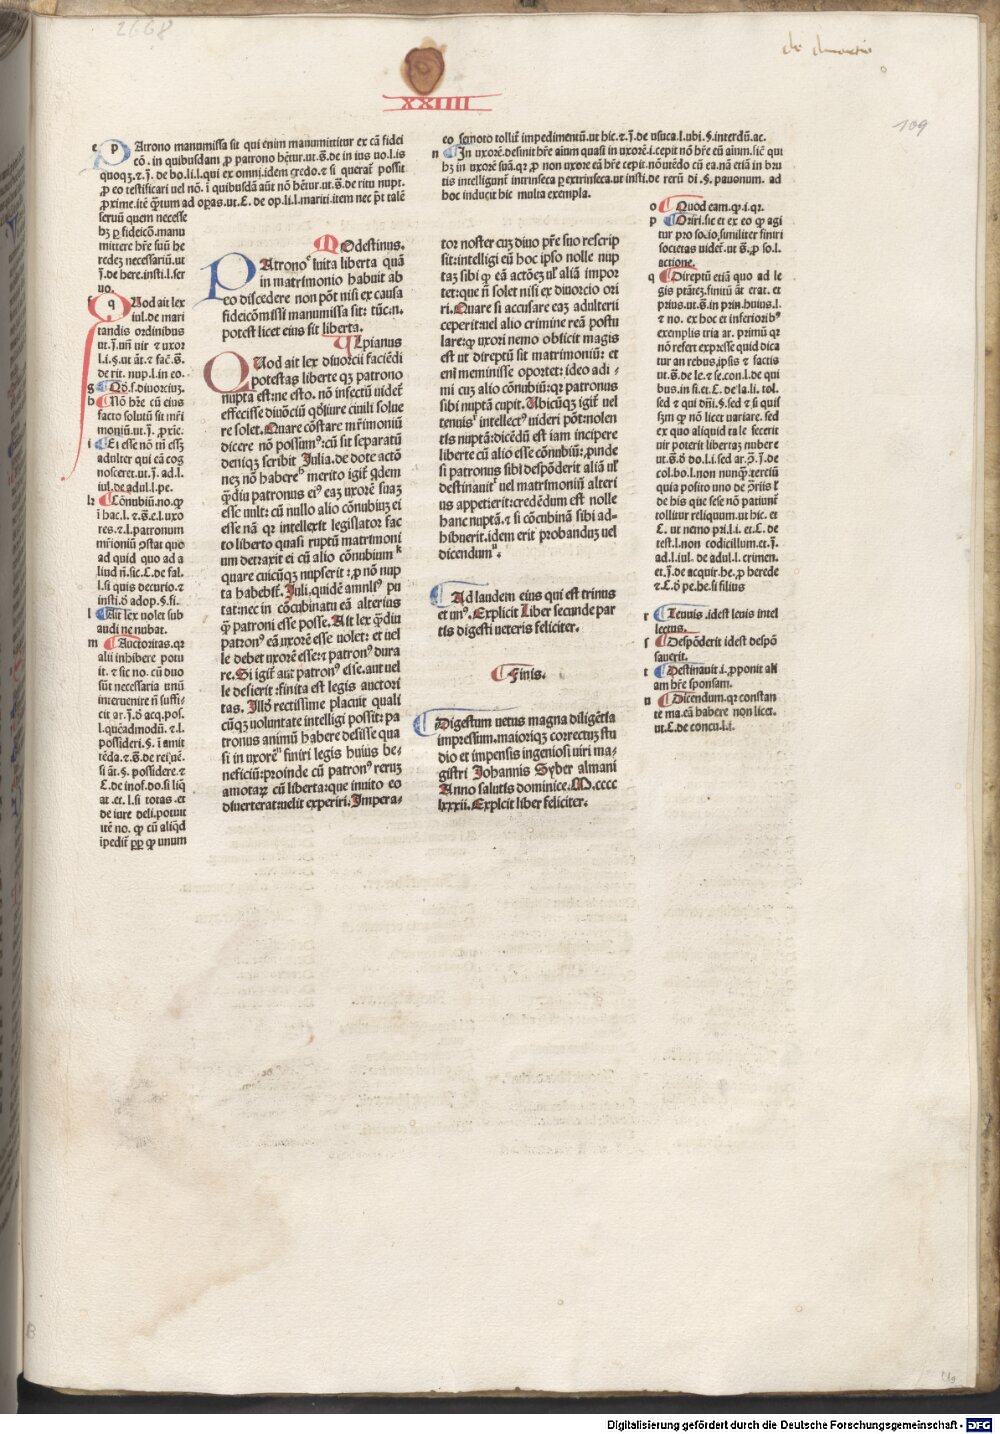 2668
XXIIII
109
Atrono manumissa sit qui enim manumittitur ex cā fidei
quoqꝫ.⁊.j̄. de bo.li.l.qui ex omni.idem credo.⁊ si querat̄ possit
seruū quem necesse
bꝫ ꝑ fideicō.manu
mittere hr̄e suū he
redeꝫ necessariū.ut
j̄.de here.insti.l.ser
uo.
f q Uod ait lex
iul.de mari
tandis ordinibus
ut.j̄.un̄ uir ⁊ uxor
de rit. nup.l.in eo.
g Qđ.s.diuorciuꝫ.
h Nō hr̄e cū eius
facto solutū sit mr̄i
moniū.ut.j̄.ꝓxie.
i Ei esse nō m̄ esset
adulter qui eā cog
nosceret.ut.j̄. ad.l.
iul.de adul.l.pe.
k Cōnubiū.no.ꝙ
l Ait lex uolet sub
audi ne nubat.
m Auctoritas.qꝛ
alii inhibere potu
it.⁊ sic no. cū duo
sūt necessaria unū
interuenire n̄ suffi-
possideri.§.i amit
C.de inof.do.si liq̄
at .et.l.si totas .et
de iure deli.potuit
ipedit̄ ꝑꝑ ꝙ unum
Modestinus.
PAtronoᵉ īuita liberta quā
in matrimonio habuit ab
eo discedere non pōt nisi ex causa
fideicōmissi manumissa sit: tūc.n.
potest licet eius sit liberta.
Ulpianus
QUod ait lex diuorcii faciēdi
potestas liberte qꝫ patrono
nupta est:ne esto. nō infectū uidet̄
effecisse diuorciū qđ iure ciuili solue
re solet.Quare cōstare mr̄imoniū
dicere nō possumꝰ:cū sit separatū
deniqꝫ scribit Julia.de dote actō
neꝫ nō habereʰ merito igit̄ q̄dem
q̄diu patronus eiꝰ eaꝫ uxorē suaꝫ
esse uult: cū nullo alio cōnubiuꝫ ei
esse nā qꝛ intellexit legislator fac
to liberto quasi ruptū matrimoni
um detraxit ei cū alio cōnubiumᵏ
quare cuicūqꝫ nupserit :ꝓ nō nup
ta habebit̄. Juli.quidē amnlꝰ pu
tat:nec in cōcubinatu eā alterius
q̄ patroni esse posse.Ait lex q̄diu
patronꝰ eā uxorē esse uolet: et uel
le debet uxorē esse:⁊ patronꝰ dura
re.Si igit̄ aut patronꝰ esse.aut uel
le desierit :finita est legis auctori
tas. Illđ rectissime placuit quali
cūqꝫ uoluntate intelligi possit: pa
tronus animū habere desisse qua
si in uxorēⁿ finiri legis huius be-
neficiū:proinde cū patronꝰ reruꝫ
amotaꝝ cū liberta:que inuito eo
diuerterat:uelit experiri. Impera-
eo remoto tollit̄ impedimentū.ut hic.⁊.j̄.de usuca.l.ubi.§.interdū.ac.
n In uxorē.desinit hr̄e aium quasi in uxorē.i.cepit nō hr̄e eū aium.sic qui
tis intelligunt̄ intrinseca ꝑ extrinseca.ut insti.de rerū di.§. pauonum. ad
hoc inducit hic multa exempla.
tor noster cuꝫ diuo pr̄e suo rescrip
sit:intelligi eū hoc ipso nolle nup
taꝫ sibi ꝙ eā actōeꝫ ul̄ aliā impor
tet:que n̄ solet nisi ex diuorcio ori
ri.Quare si accusare eaꝫ adulterii
ceperit:uel alio crimine reā postu
lare:ꝙ uxori nemo obiicit magis
est ut direptū sit matrimoniū: et
eni meminisse oportet: ideo adi-
mi cuꝫ alio cōnubiū:qꝛ patronus
sibi nuptā cupit.Ubicūqꝫ igit̄ uel
tenuisʳ intellectꝰ uideri pōt:nolen
tis nuptā:dicēdū est iam incipere
liberte cū alio esse cōnubiū: ꝓinde
si patronus sibi despōderit aliā ul̄
destinauitᵗ uel matrimoniū alteri
us appetierit:credēdum est nolle
hanc nuptā.⁊ si cōcubinā sibi ad-
hibuerit.idem erit probanduꝫ uel
dicendumᵘ.
Ad laudem eius qui est trinus
et unꝰ. Explicit Liber secunde par
tis digesti ueteris feliciter.
Finis.
Digestum uetus magna diligētia
impressum.maioriqꝫ correctuꝫ stu
dio et impensis ingeniosi uiri ma-
gistri Johannis Syber almani
Anno salutis dominice.M.cccc
lxxxii.Explcit liber feliciter.
o Quod eam.ꝙ.i.qꝛ.
p Oriri.sic et ex eo ꝙ agi
tur pro so.io.similiter finiri
societas uidet̄.ut §.ꝓ so.l.
actione.
q Direptū etiā quo ad le
gis ptāteꝫ.finiū āt erat. et
prius.ut.§.in prin.huius.l.
⁊ no. ex hoc et inferioribꝰ
exemplis tria ar. primū qꝛ
nō refert expresse quid dica
tur an rebus,ipsis ⁊ factis
ut.§.de le.⁊ se.con.l.de qui
bus.in fi.et. C. de la.li. tol.
ex quo aliquid tale fecerit
uir poterit libertaꝫ nubere
quia posito uno de ꝯ̄riis ul̄
de his que sese nō patiunt̄
tollitur reliquum.ut hic. et
C. ut nemo pri.l.i. et.C. de
test.l.non codicillum.et.j̄.
ad.l.iul. de adul.l. crimen.
et.j̄.de acquir.he.ꝓ herede
⁊ C.đ pe.he.si filius
r Tenuis .idest leuis intel
lectus.
s Despōderit idest despō
sauerit.
t Destinauit.i.ꝓponit ali
am hr̄e sponsam.
u Dicendum.qꝛ constan
te ma.eā habere non licet.
ut.C.de concu.l.i.
Digitalisierung gefördert durch die Deutsche Forschungsgemeinschaft - DFG